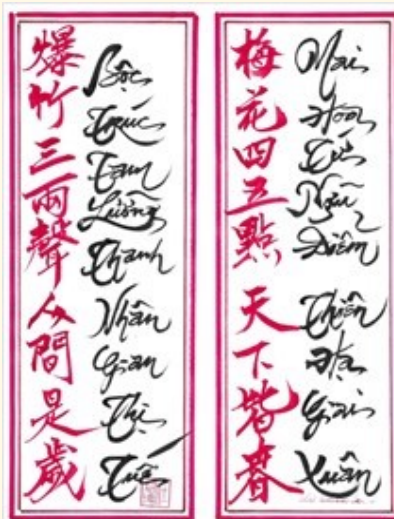 爆竹三兩聲人間是歲
Bộc Trúc Tam Lưỡng Thanh Nhân Gian Thị Tuế
梅花四五點天下皆春
Mai Hoa Tứ Ngũ Điểm Thiên Hạ Giai Xuân